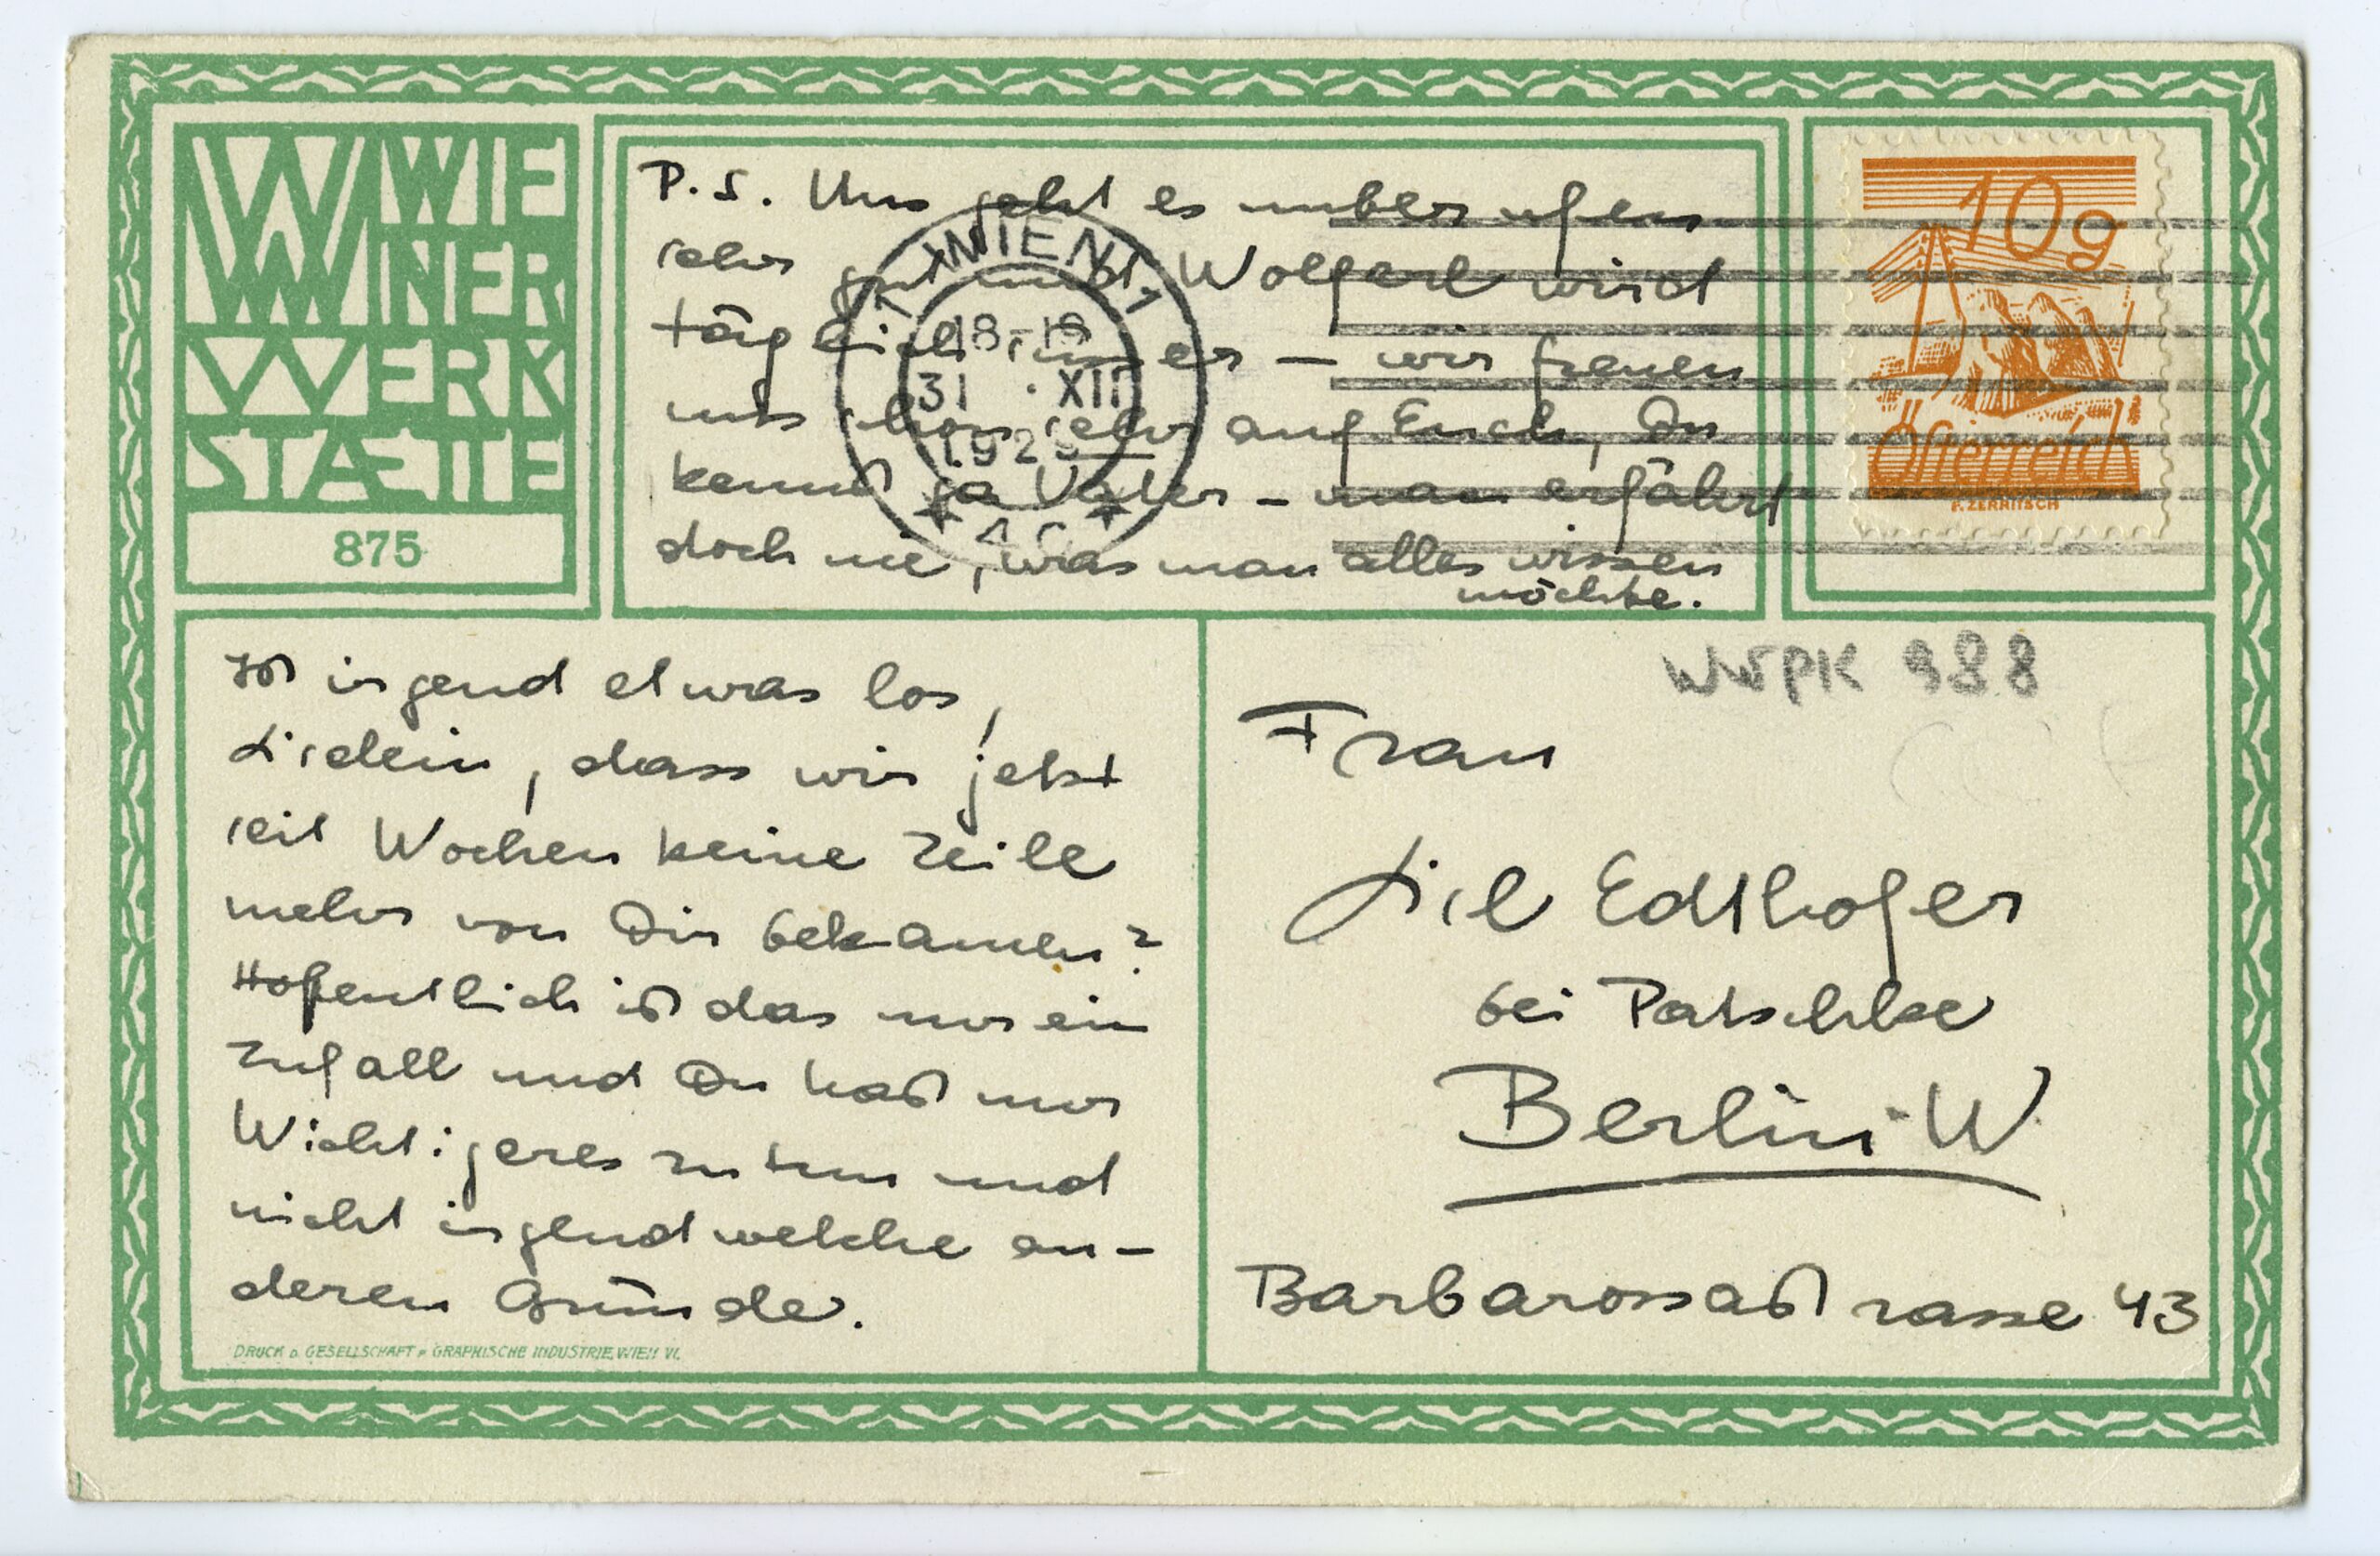 WIENER WERKSTÆTTE
875
P.S. Uns geht es unberufen
sehr gut und Wolferl wird
täglich süsser — wir freuen
uns schon sehr auf Euch, Du
kennst ja Vater – man erfährt
doch nie, was man alles wissen
möchte.
1 WIEN 1
18-19
31 . XII
1925
10g
Österreich
F. ZERRITSCH
Ist irgend etwas los,
Lislein, dass wir jetzt
seit Wochen keine Zeile
mehr von Dir bekamen?
Hoffentlich ist das nur ein
Zufall und Du hast nur
Wichtigeres zu tun und
nicht irgendwelche an-
deren Gründe.
DRUCK D. GESELLSCHAFT F. GRAPHISCHE INDUSTRIE, WIEN VI.
WWPK 988
Frau
Lisl Edthofer
bei Patschke
Berlin-W
Barbarossastrasse 43